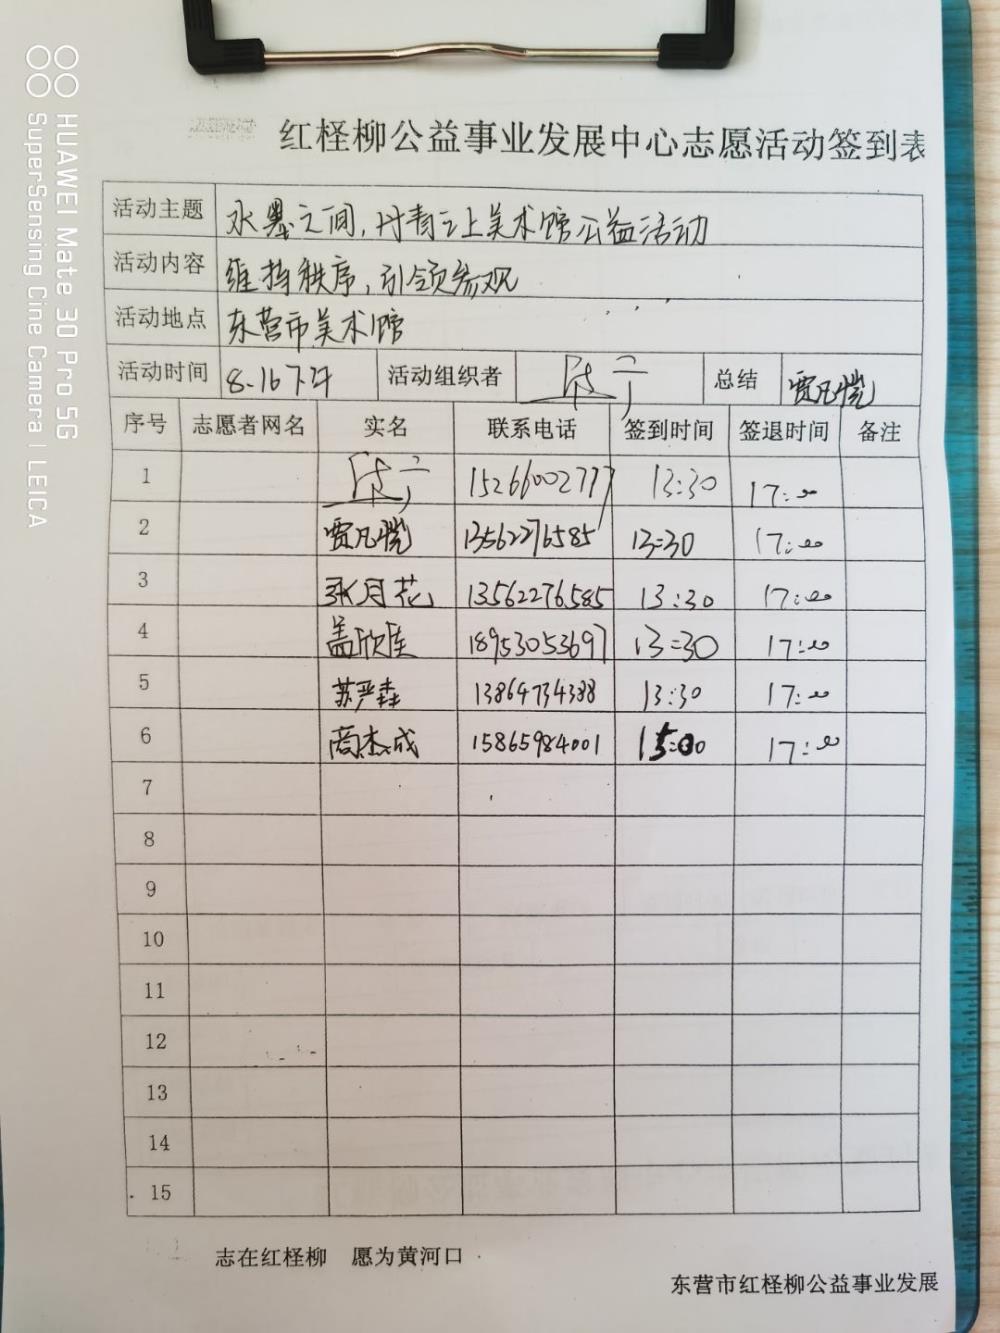 红柽柳公益事业发展中心志愿活动签到表
活动主题 水墨之间,丹青之上美术馆公益活动
活动内容 维持秩序,引领参观
活动地点 东营市美术馆
活动时间 8.16下午 活动组织者 总结 贾凡恺
序号 志愿者网名 实名 联系电话 签到时间 签退时间 备注
1 15266002777 13:30 17:00
2 贾凡恺 13562276585 13:30 17:00
3 张月花 13562276585 13:30 17:00
4 盖欣佳 18953053697 13:30 17:00
5 苏严森 13864734388 13:30 17:00
6 商杰成 15865984001 15:00 17:00
7
8
9
10
11
12
13
14
15
志在红柽柳 愿为黄河口
东营市红柽柳公益事业发展
HUAWEI Mate 30 Pro 5G
SuperSensing Cine Camera | LEICA